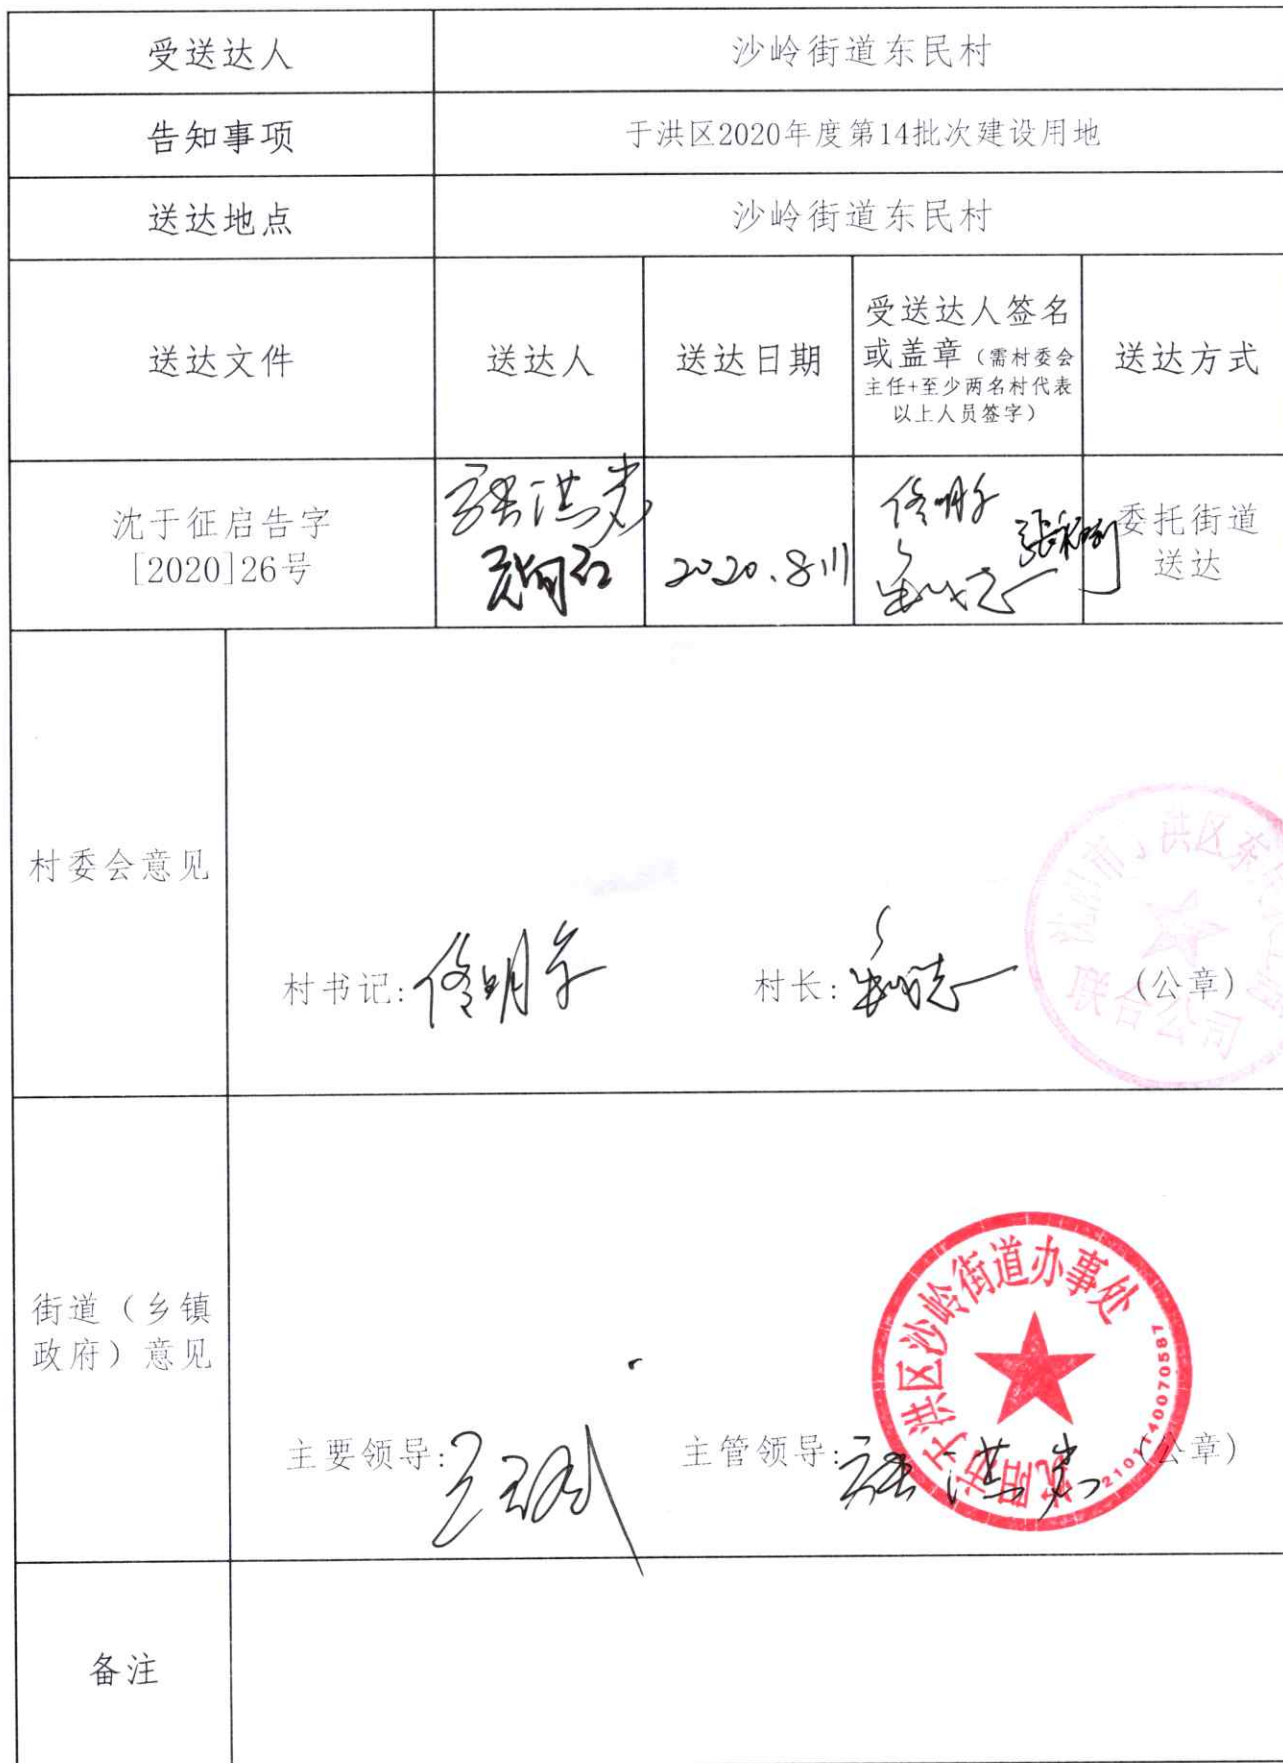 受送达人
沙岭街道东民村
告知事项
于洪区2020年度第14批次建设用地
送达地点
沙岭街道东民村
送达文件
送达人
送达日期
受送达人签名
或盖章（需村委会
主任+至少两名村代表
以上人员签字）
送达方式
沈于征启告字
[2020]26号
张洪岩
2020.8.11
佟明
委托街道
送达
村委会意见
村书记:佟明
村长:
（公章）
沈阳市于洪区东
联合公司
街道（乡镇
政府）意见
主要领导:
主管领导:张洪岩
（公章）
沈阳市于洪区沙岭街道办事处
2101140070587
备注